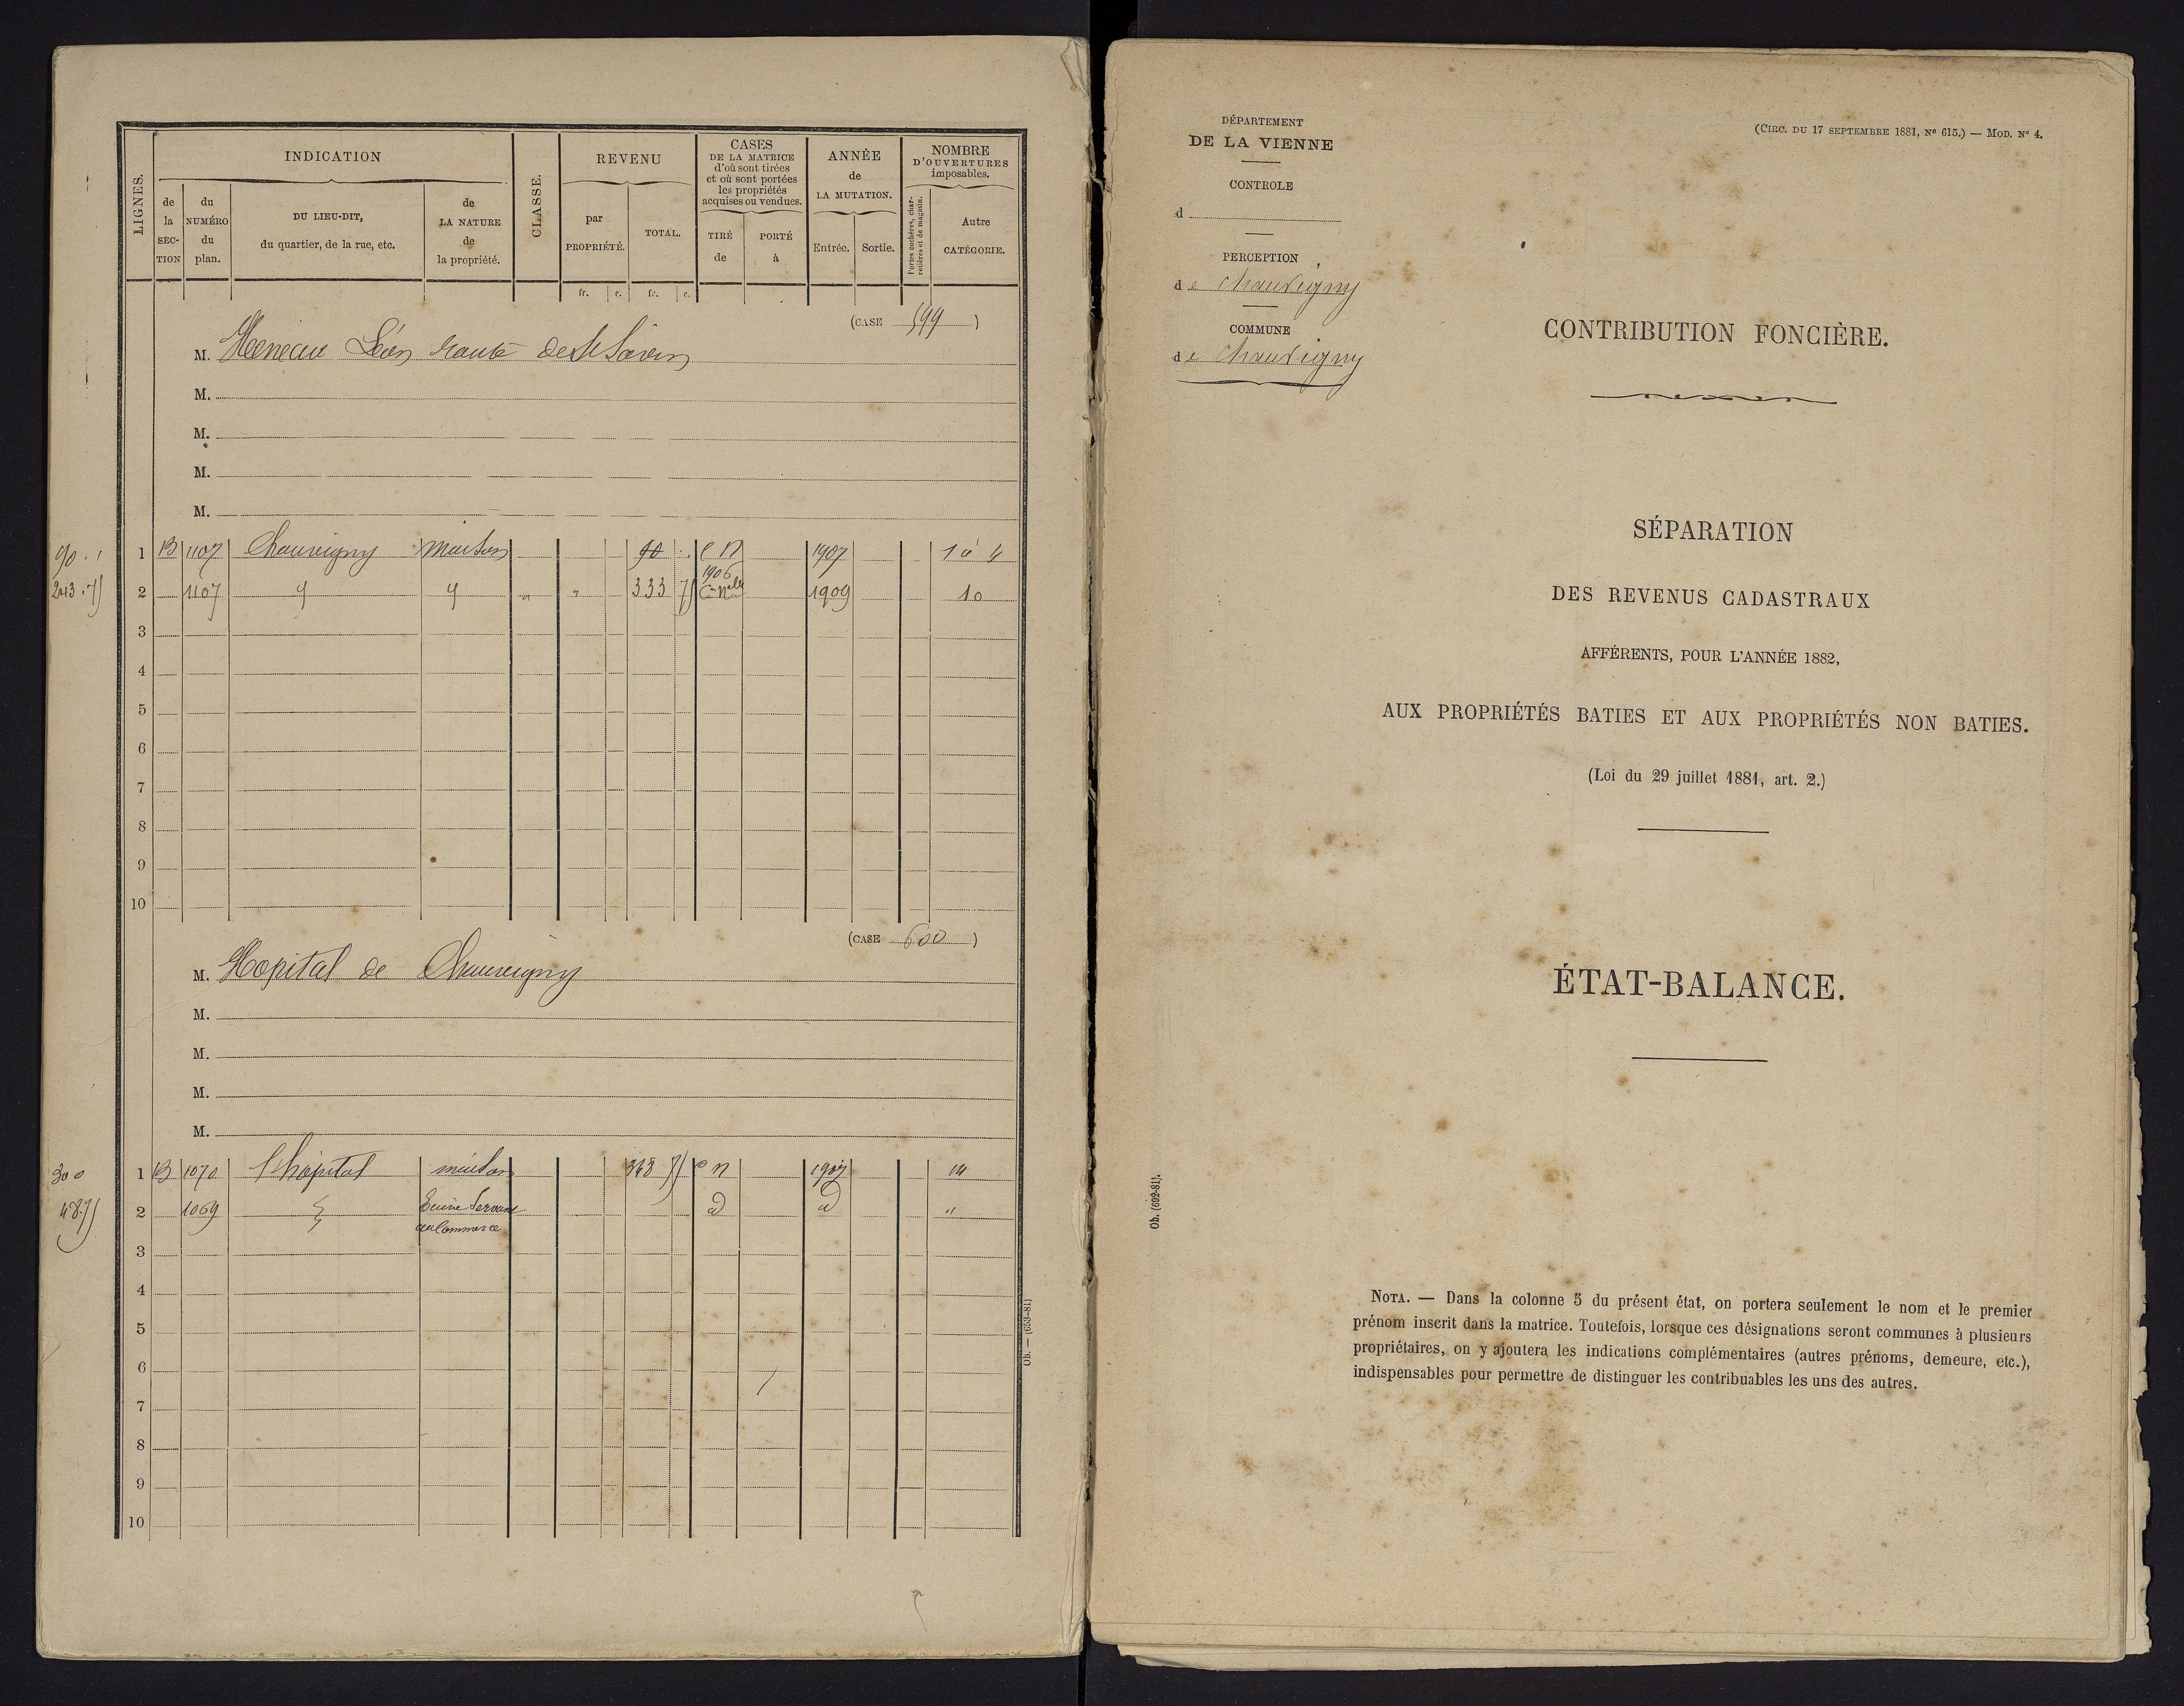 LIGNES.
INDICATION
de la SECTION
du NUMÉRO du plan.
DU LIEU-DIT, du quartier, de la rue, etc.
de LA NATURE de la propriété.
CLASSE.
REVENU
par PROPRIÉTÉ.
TOTAL.
CASES DE LA MATRICE d'où sont tirées et où sont portées les propriétés acquises ou vendues.
TIRÉ de
PORTÉ à
ANNÉE de LA MUTATION.
Entrée.
Sortie.
NOMBRE D'OUVERTURES imposables.
Portes cochères, charretières et de magasin.
Autre CATÉGORIE.
fr. c. fr. c.
(CASE 599)
M. Léon route de St Savin
M.
M.
M.
M.
90 1 B 1107 Chauvigny maison 90 C N 1907 1 à 4
243.75 2 1107 " " " " 333 75 1906 1909 10
3
4
5
6
7
8
9
10
(CASE 600)
M. Hopital de Chauvigny
M.
M.
M.
M.
300 1 B 1070 l'hôpital maison 348 75 C N 1907 14
48.75 2 1069 servant d d "
au Commerce
3
4
5
6
7
8
9
10
Ob. — (653-81)
DÉPARTEMENT
DE LA VIENNE
CONTROLE
d
PERCEPTION
de Chauvigny
COMMUNE
de Chauvigny
(CIRC. DU 17 SEPTEMBRE 1881, N° 615.) — MOD. N° 4.
CONTRIBUTION FONCIÈRE.
SÉPARATION
DES REVENUS CADASTRAUX
AFFÉRENTS, POUR L'ANNÉE 1882,
AUX PROPRIÉTÉS BATIES ET AUX PROPRIÉTÉS NON BATIES.
(Loi du 29 juillet 1881, art. 2.)
ÉTAT-BALANCE.
Ob. (692-81).
NOTA. — Dans la colonne 5 du présent état, on portera seulement le nom et le premier
prénom inscrit dans la matrice. Toutefois, lorsque ces désignations seront communes à plusieurs
propriétaires, on y ajoutera les indications complémentaires (autres prénoms, demeure, etc.),
indispensables pour permettre de distinguer les contribuables les uns des autres.